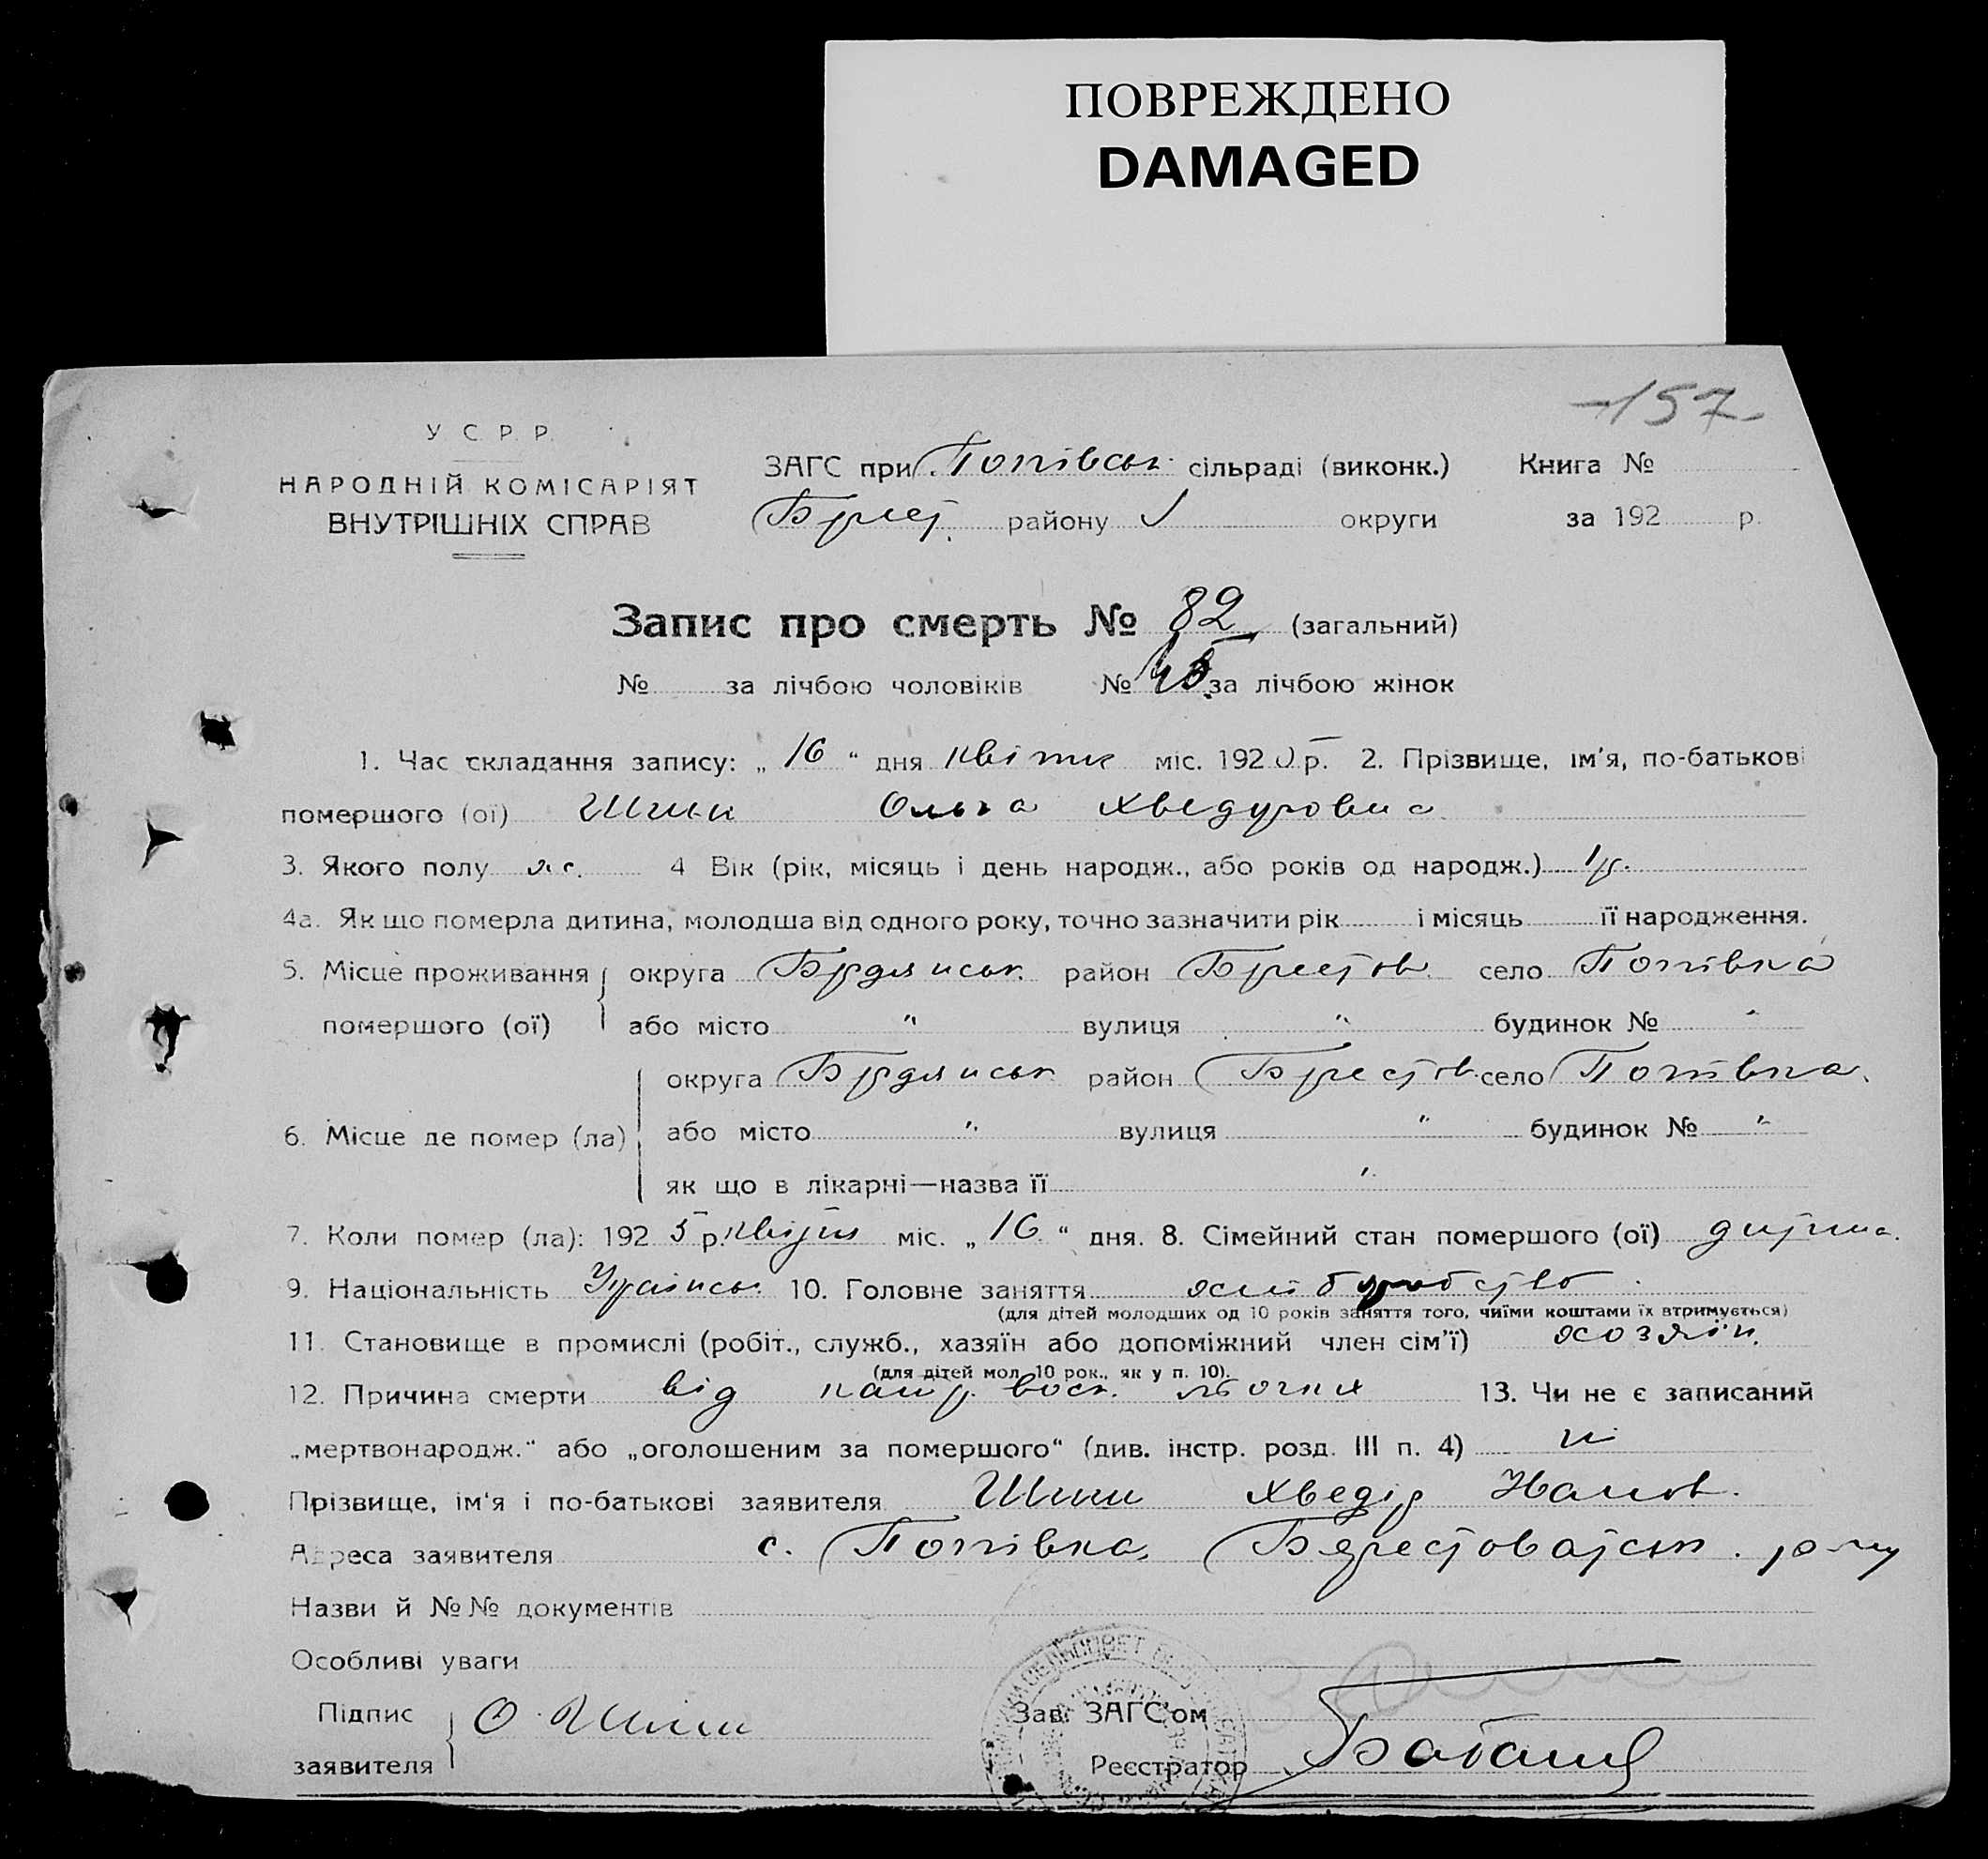 ПОВРЕЖДЕНО
DAMAGED
-157-
У С Р Р
НАРОДНІЙ КОМІСАРІЯТ
ВНУТРІШНІХ СПРАВ
ЗАГС при Попівськ. сільраді (виконк.) Книга №
району округи за 192 р.
Запис про смерть № 82 (загальний)
№ за лічбою чоловіків № за лічбою жінок
1. Час складання запису: „ 16 “ дня міс. 192 р. 2. Прізвище, ім'я, по-батькові
помершого (ої) Ольга Хведоровна
3. Якого полу 4 Вік (рік, місяць і день народж., або років од народж.) 1 р.
4а. Як що померла дитина, молодша від одного року, точно зазначити рік і місяць її народження.
5. Місце проживання округа Брдянськ. район Брестов. село Попівка
помершого (ої) або місто " вулиця " будинок № "
6. Місце де помер (ла) округа Брдянськ район Брестов. село Попівка.
або місто " вулиця " будинок № "
як що в лікарні—назва її "
7. Коли помер (ла): 192 5 р. квітня міс. „ 16 “ дня. 8. Сімейний стан помершого (ої) дитина.
9. Національність Україньс. 10. Головне заняття
(для дітей молодших од 10 років заняття того, чиїми коштами їх втримується)
11. Становище в промислі (робіт., служб., хазяїн або допоміжний член сім'ї) хозяїн.
(для дітей мол. 10 рок., як у п. 10).
12. Причина смерти від восп. льогких 13. Чи не є записаний
„мертвонародж.“ або „оголошеним за помершого“ (див. інстр. розд. III п. 4) ні
Прізвище, ім'я і по-батькові заявителя Хведір
Адреса заявителя с. Попівка, Берестоватськ. р-ну
Назви й №№ документів
Особливі уваги
Підпис
заявителя
Зав. ЗАГС'ом
Реєстратор